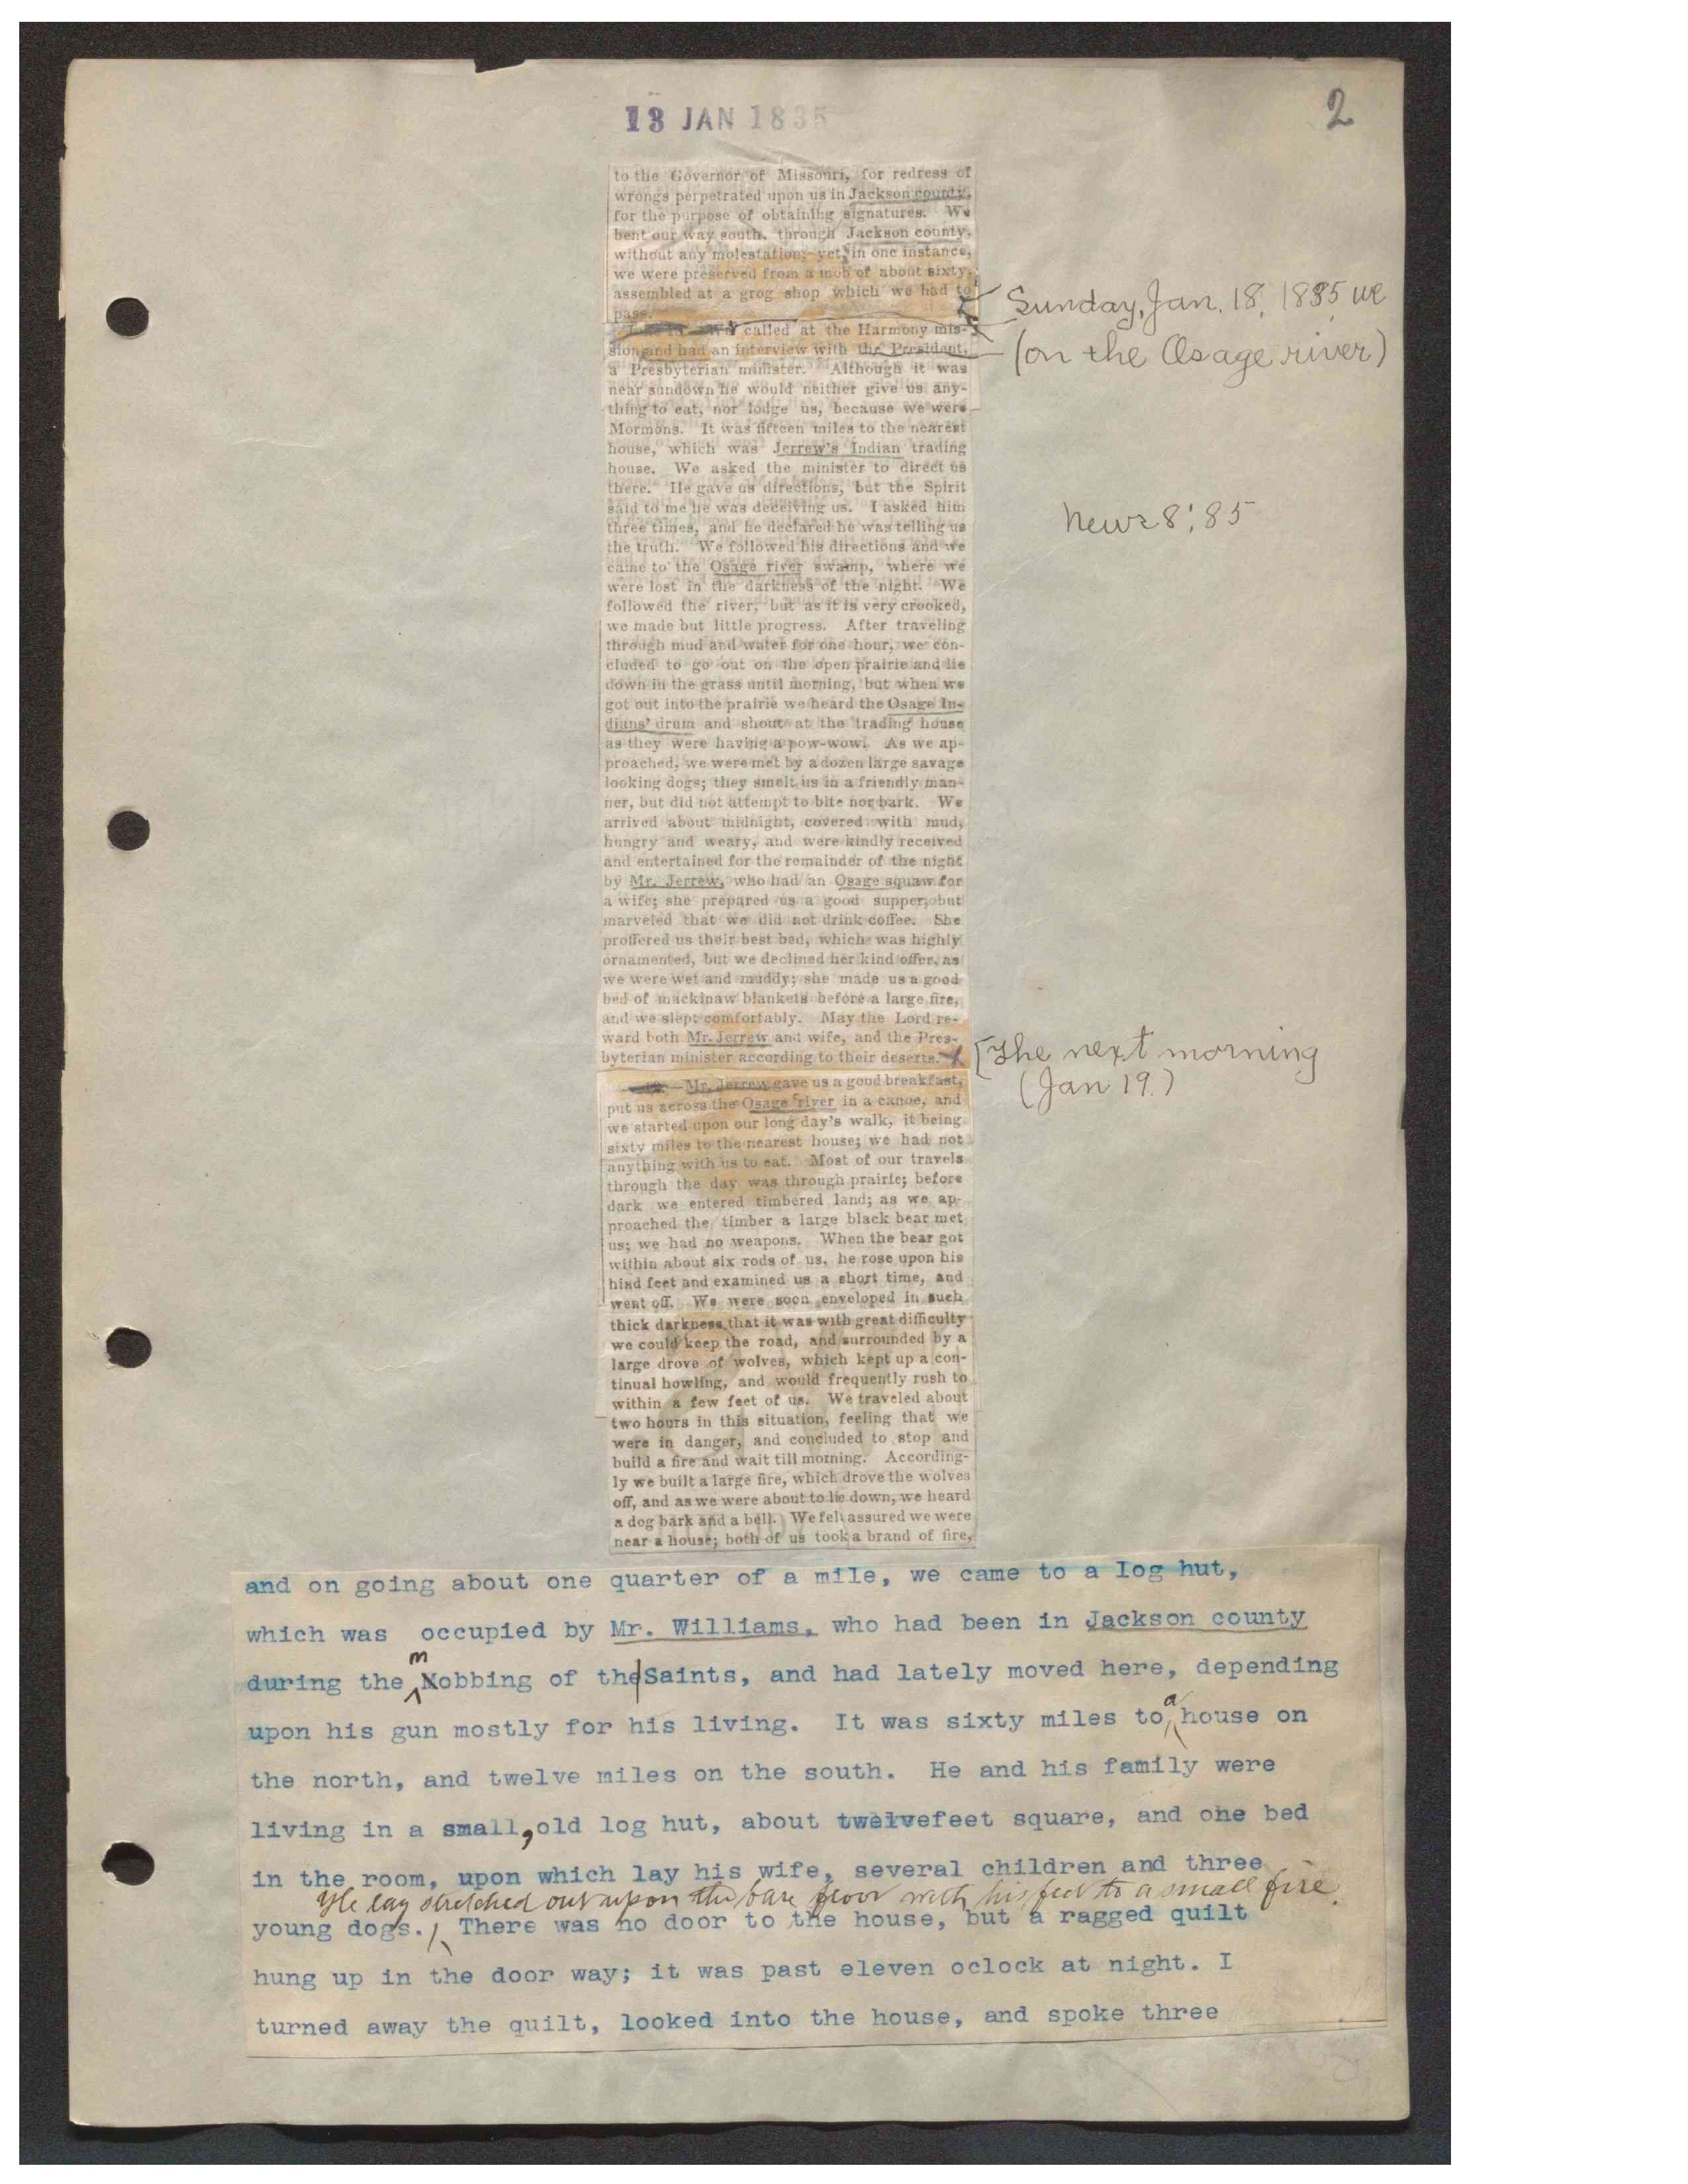 13 JAN 1835
2
to the Governor of Missouri, for redress of
wrongs perpetrated upon us in Jackson county,
for the purpose of obtaining signatures. We
bent our way south, through Jackson county,
without any molestation; yet, in one instance,
we were preserved from a mob of about sixty,
assembled at a grog shop which we had to
pass.
Sunday, Jan. 18, 1835 we
called at the Harmony mis-
sion and had an interview with the President,
(on the Osage river)
a Presbyterian minister. Although it was
near sundown he would neither give us any-
thing to eat, nor lodge us, because we were
Mormons. It was fifteen miles to the nearest
house, which was Jerrew's Indian trading
house. We asked the minister to direct us
there. He gave us directions, but the Spirit
said to me he was deceiving us. I asked him
News 8:85
three times, and he declared he was telling us
the truth. We followed his directions and we
came to the Osage river swamp, where we
were lost in the darkness of the night. We
followed the river, but as it is very crooked,
we made but little progress. After traveling
through mud and water for one hour, we con-
cluded to go out on the open prairie and lie
down in the grass until morning, but when we
got out into the prairie we heard the Osage In-
dians' drum and shout at the trading house
as they were having a pow-wow. As we ap-
proached, we were met by a dozen large savage
looking dogs; they smelt us in a friendly man-
ner, but did not attempt to bite nor bark. We
arrived about midnight, covered with mud,
hungry and weary, and were kindly received
and entertained for the remainder of the night
by Mr. Jerrew, who had an Osage squaw for
a wife; she prepared us a good supper, but
marveled that we did not drink coffee. She
proffered us their best bed, which was highly
ornamented, but we declined her kind offer, as
we were wet and muddy; she made us a good
bed of mackinaw blankets before a large fire,
and we slept comfortably. May the Lord re-
ward both Mr. Jerrew and wife, and the Pres-
byterian minister according to their deserts.
[The next morning
(Jan 19.)
19.—Mr. Jerrew gave us a good breakfast,
put us across the Osage river in a canoe, and
we started upon our long day's walk, it being
sixty miles to the nearest house; we had not
anything with us to eat. Most of our travels
through the day was through prairie; before
dark we entered timbered land; as we ap-
proached the timber a large black bear met
us; we had no weapons. When the bear got
within about six rods of us, he rose upon his
hind feet and examined us a short time, and
went off. We were soon enveloped in such
thick darkness that it was with great difficulty
we could keep the road, and surrounded by a
large drove of wolves, which kept up a con-
tinual howling, and would frequently rush to
within a few feet of us. We traveled about
two hours in this situation, feeling that we
were in danger, and concluded to stop and
build a fire and wait till morning. According-
ly we built a large fire, which drove the wolves
off, and as we were about to lie down, we heard
a dog bark and a bell. We felt assured we were
near a house; both of us took a brand of fire,
and on going about one quarter of a mile, we came to a log hut,
which was occupied by Mr. Williams, who had been in Jackson county
during the mobbing of the Saints, and had lately moved here, depending
upon his gun mostly for his living. It was sixty miles to a house on
the north, and twelve miles on the south. He and his family were
living in a small, old log hut, about twelvefeet square, and one bed
in the room, upon which lay his wife, several children and three
He lay stretched out upon the bare floor with his feet to a small fire.
young dogs. There was no door to the house, but a ragged quilt
hung up in the door way; it was past eleven oclock at night. I
turned away the quilt, looked into the house, and spoke three